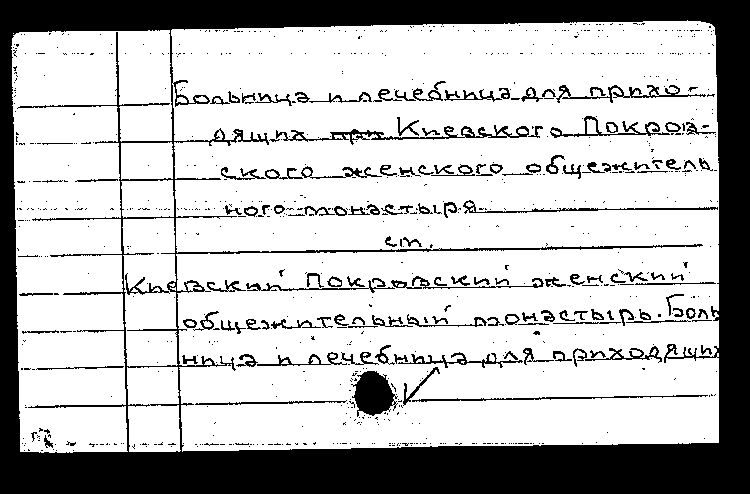 Больница и лечебница для прихо-
дящих при Киевского Покров-
ского женского общежитель
ного монастыря
см.
Киевский Покровский женский
общежительный монастырь. Боль
ница и лечебница для приходящих